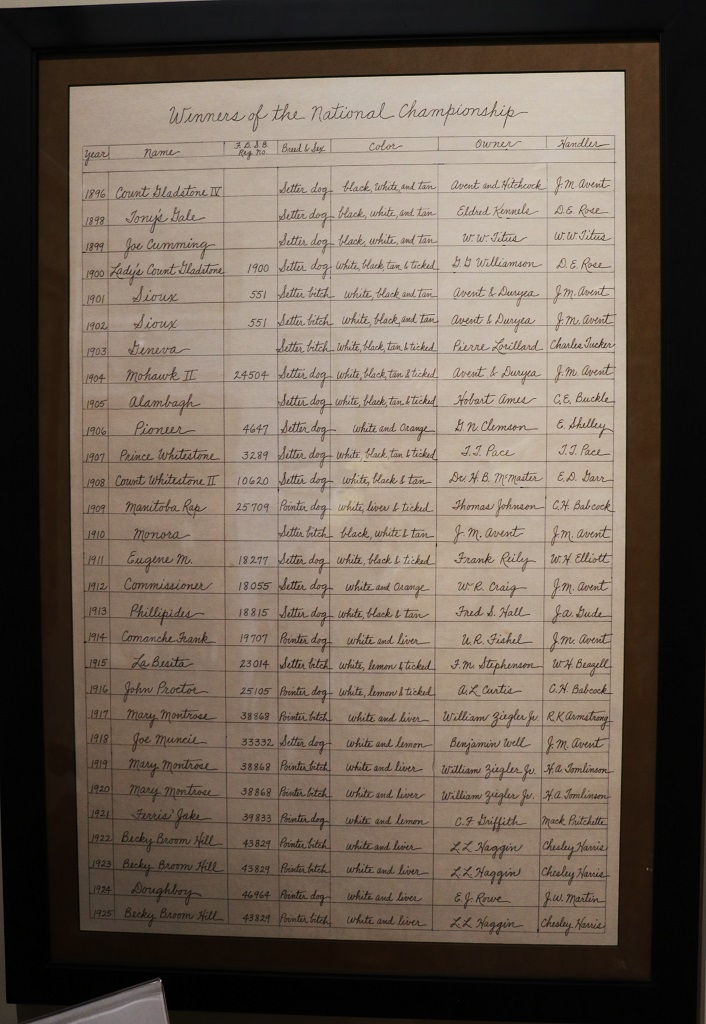 Winners of the National Championship
Year Name F.D.S.B. Reg. no. Breed & Sex Color Owner Handler
1896 Count Gladstone IV Setter dog black, white, and tan Avent and Hitchcock J.M. Avent
1898 Tony's Gale Setter dog black, white, and tan Eldred Kennels D.E. Rose
1899 Joe Cumming Setter dog black, white, and tan W.W. Titus W.W. Titus
1900 Lady's Count Gladstone 1900 Setter dog white, black, tan & ticked G.G. Williamson D.E. Rose
1901 Sioux 551 Setter bitch white, black, and tan Avent & Duryea J.M. Avent
1902 Sioux 551 Setter bitch white, black, and tan Avent & Duryea J.M. Avent
1903 Geneva Setter bitch white, black, tan & ticked Pierre Lorillard Charles Tucker
1904 Mohawk II 24504 Setter dog white, black, tan & ticked Avent & Duryea J.M. Avent
1905 Alambagh Setter dog white, black, tan & ticked Hobart Ames C.E. Buckle
1906 Pioneer 4647 Setter dog white and Orange G.N. Clemson E. Shelley
1907 Prince Whitestone 3289 Setter dog white, black, tan & ticked T.T. Pace T.T. Pace
1908 Count Whitestone II 10620 Setter dog white, black & tan Dr. H.B. McMaster E.D. Garr
1909 Manitoba Rap 25709 Pointer dog white, liver & ticked Thomas Johnson C.H. Babcock
1910 Monora Setter bitch black, white & tan J.M. Avent J.M. Avent
1911 Eugene M. 18277 Setter dog white, black & ticked Frank Reily W.H. Elliott
1912 Commissioner 18055 Setter dog white and Orange W.R. Craig J.M. Avent
1913 Phillipides 18815 Setter dog white, black & tan Fred S. Hall J.A. Gude
1914 Comanche Frank 19707 Pointer dog white and liver U.R. Fishel J.M. Avent
1915 La Besita 23014 Setter bitch white, lemon & ticked F.M. Stephenson W.H. Beazell
1916 John Proctor 25105 Pointer dog white, lemon & ticked A.L. Curtis C.H. Babcock
1917 Mary Montrose 38868 Pointer bitch white and liver William Ziegler Jr. R.K Armstrong
1918 Joe Muncie 33332 Setter dog white and lemon Benjamin Well J.M. Avent
1919 Mary Montrose 38868 Pointer bitch white and liver William Ziegler Jr. H.A Tomlinson
1920 Mary Montrose 38868 Pointer bitch white and liver William Ziegler Jr. H.A Tomlinson
1921 Ferris' Jake 39833 Pointer dog white and lemon C.F Griffith Mack Pritchette
1922 Becky Broom Hill 43829 Pointer bitch white and liver L.L Haggin Chesley Harris
1923 Becky Broom Hill 43829 Pointer bitch white and liver L.L Haggin Chesley Harris
1924 Doughboy 46964 Pointer dog white and liver E.J. Rowe J.W. Martin
1925 Becky Broom Hill 43829 Pointer bitch white and liver L.L Haggin Chesley Harris